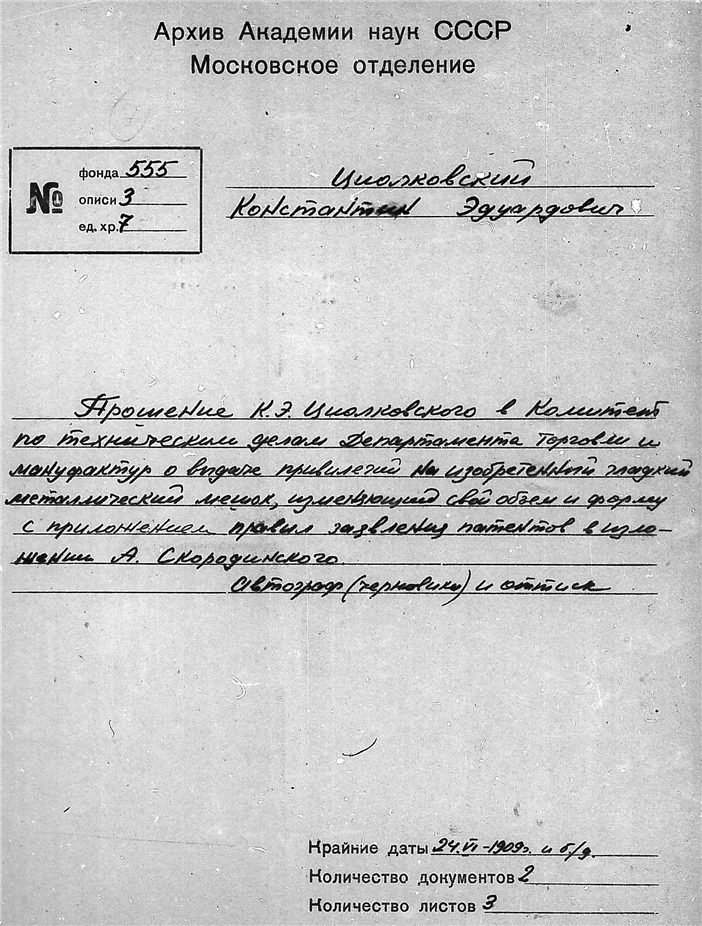 Архив Академии наук СССР
Московское отделение
№
фонда 555
описи 3
ед. хр. 7
Циолковский
Константин Эдуардович
Прошение К.Э. Циолковского в Комитет
по техническим делам Департамента торговли и
мануфактур о выдаче привилегий на изобретенный гладкий
металлический мешок, изменяющий свой объем и форму
с приложением правил заявления патентов в изло-
жении А. Скородинского.
Автограф (черновики) и оттиск
Крайние даты 24.VI-1909г. и б/д.
Количество документов 2
Количество листов 3